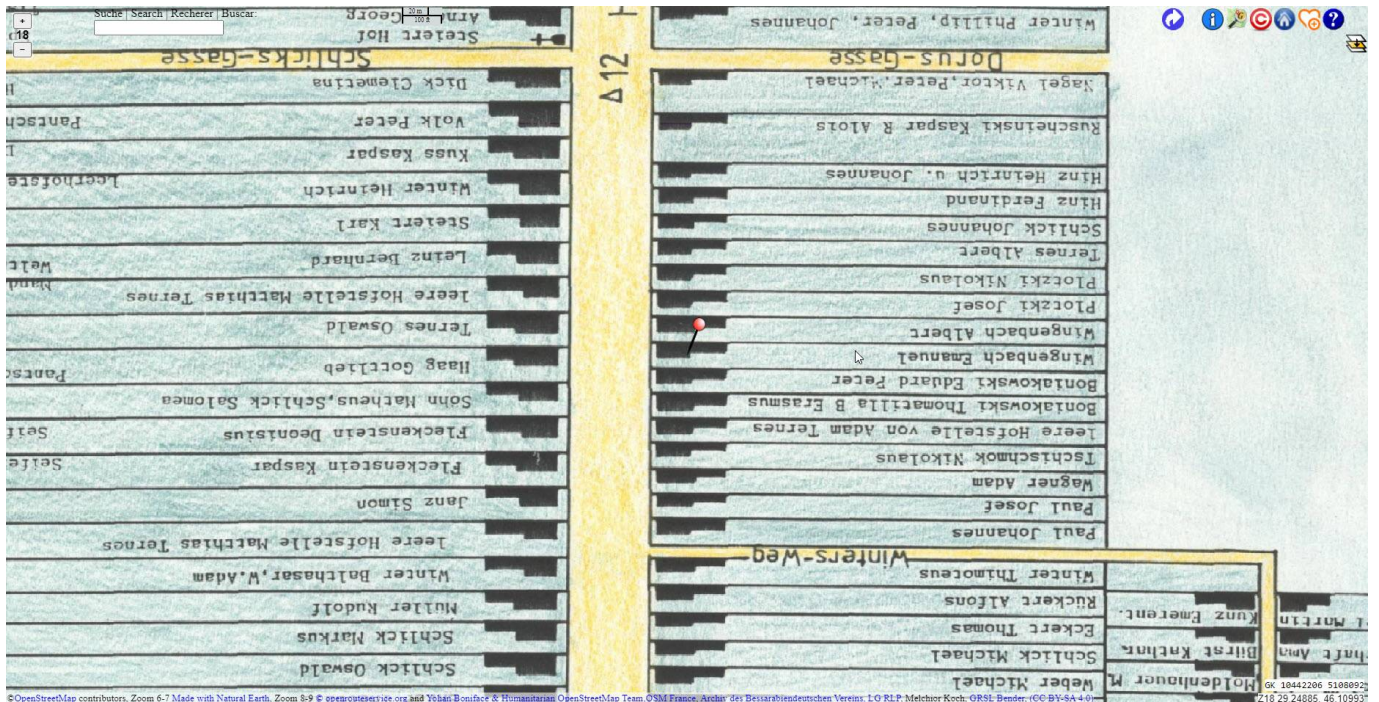 Suche | Search | Recherer | Buscar:
20 m
100 ft
+
18
−
Arnold Georg
Steiert Hof
Schlicks-Gasse
Dick Clemetina
Volk Peter
Kuss Kaspar
Winter Heinrich
Steiert Karl
Leinz Bernhard
leere Hofstelle Matthias Ternes
Ternes Oswald
Haag Gottlieb
Sohn Matheus,Schlick Salomea
Fleckenstein Deonisius
Fleckenstein Kaspar
Janz Simon
leere Hofstelle Matthias Ternes
Winter Balthasar,W.Adam
Müller Rudolf
Schlick Markus
Schlick Oswald
Leerhofste
Welt
Seife
Δ 12
Winter Phillip, Peter, Johannes
Dorus-Gasse
Nagel Viktor,Peter,Michael
Ruscheinski Kaspar R Alois
Hinz Heinrich u. Johannes
Hinz Ferdinand
Schlick Johannes
Ternes Albert
Plotzki Nikolaus
Plotzki Josef
Wingenbach Albert
Wingenbach Emanuel
Boniakowski Eduard Peter
Boniakowski Thomatilla B Erasmus
leere Hofstelle von Adam Ternes
Tschischmok Nikolaus
Wagner Adam
Paul Josef
Paul Johannes
Winters-Weg
Winter Thimoteus
Rückert Alfons
Eckert Thomas
Schlick Michael
Weber Michael
Kunz Emerent.
Bürst Kathar.
Moldenhauer M
l Martin
haft Anna
GK 10442206 5108092
Z18 29.24885, 46.10993
©OpenStreetMap contributors, Zoom 6-7 Made with Natural Earth, Zoom 8-9 © openrouteservice.org and Yohan Boniface & Humanitarian OpenStreetMap Team,OSM France, Archiv des Bessarabiendeutschen Vereins, LG RLP, Melchior Koch, GRSI, Bender, (CC BY-SA 4.0)